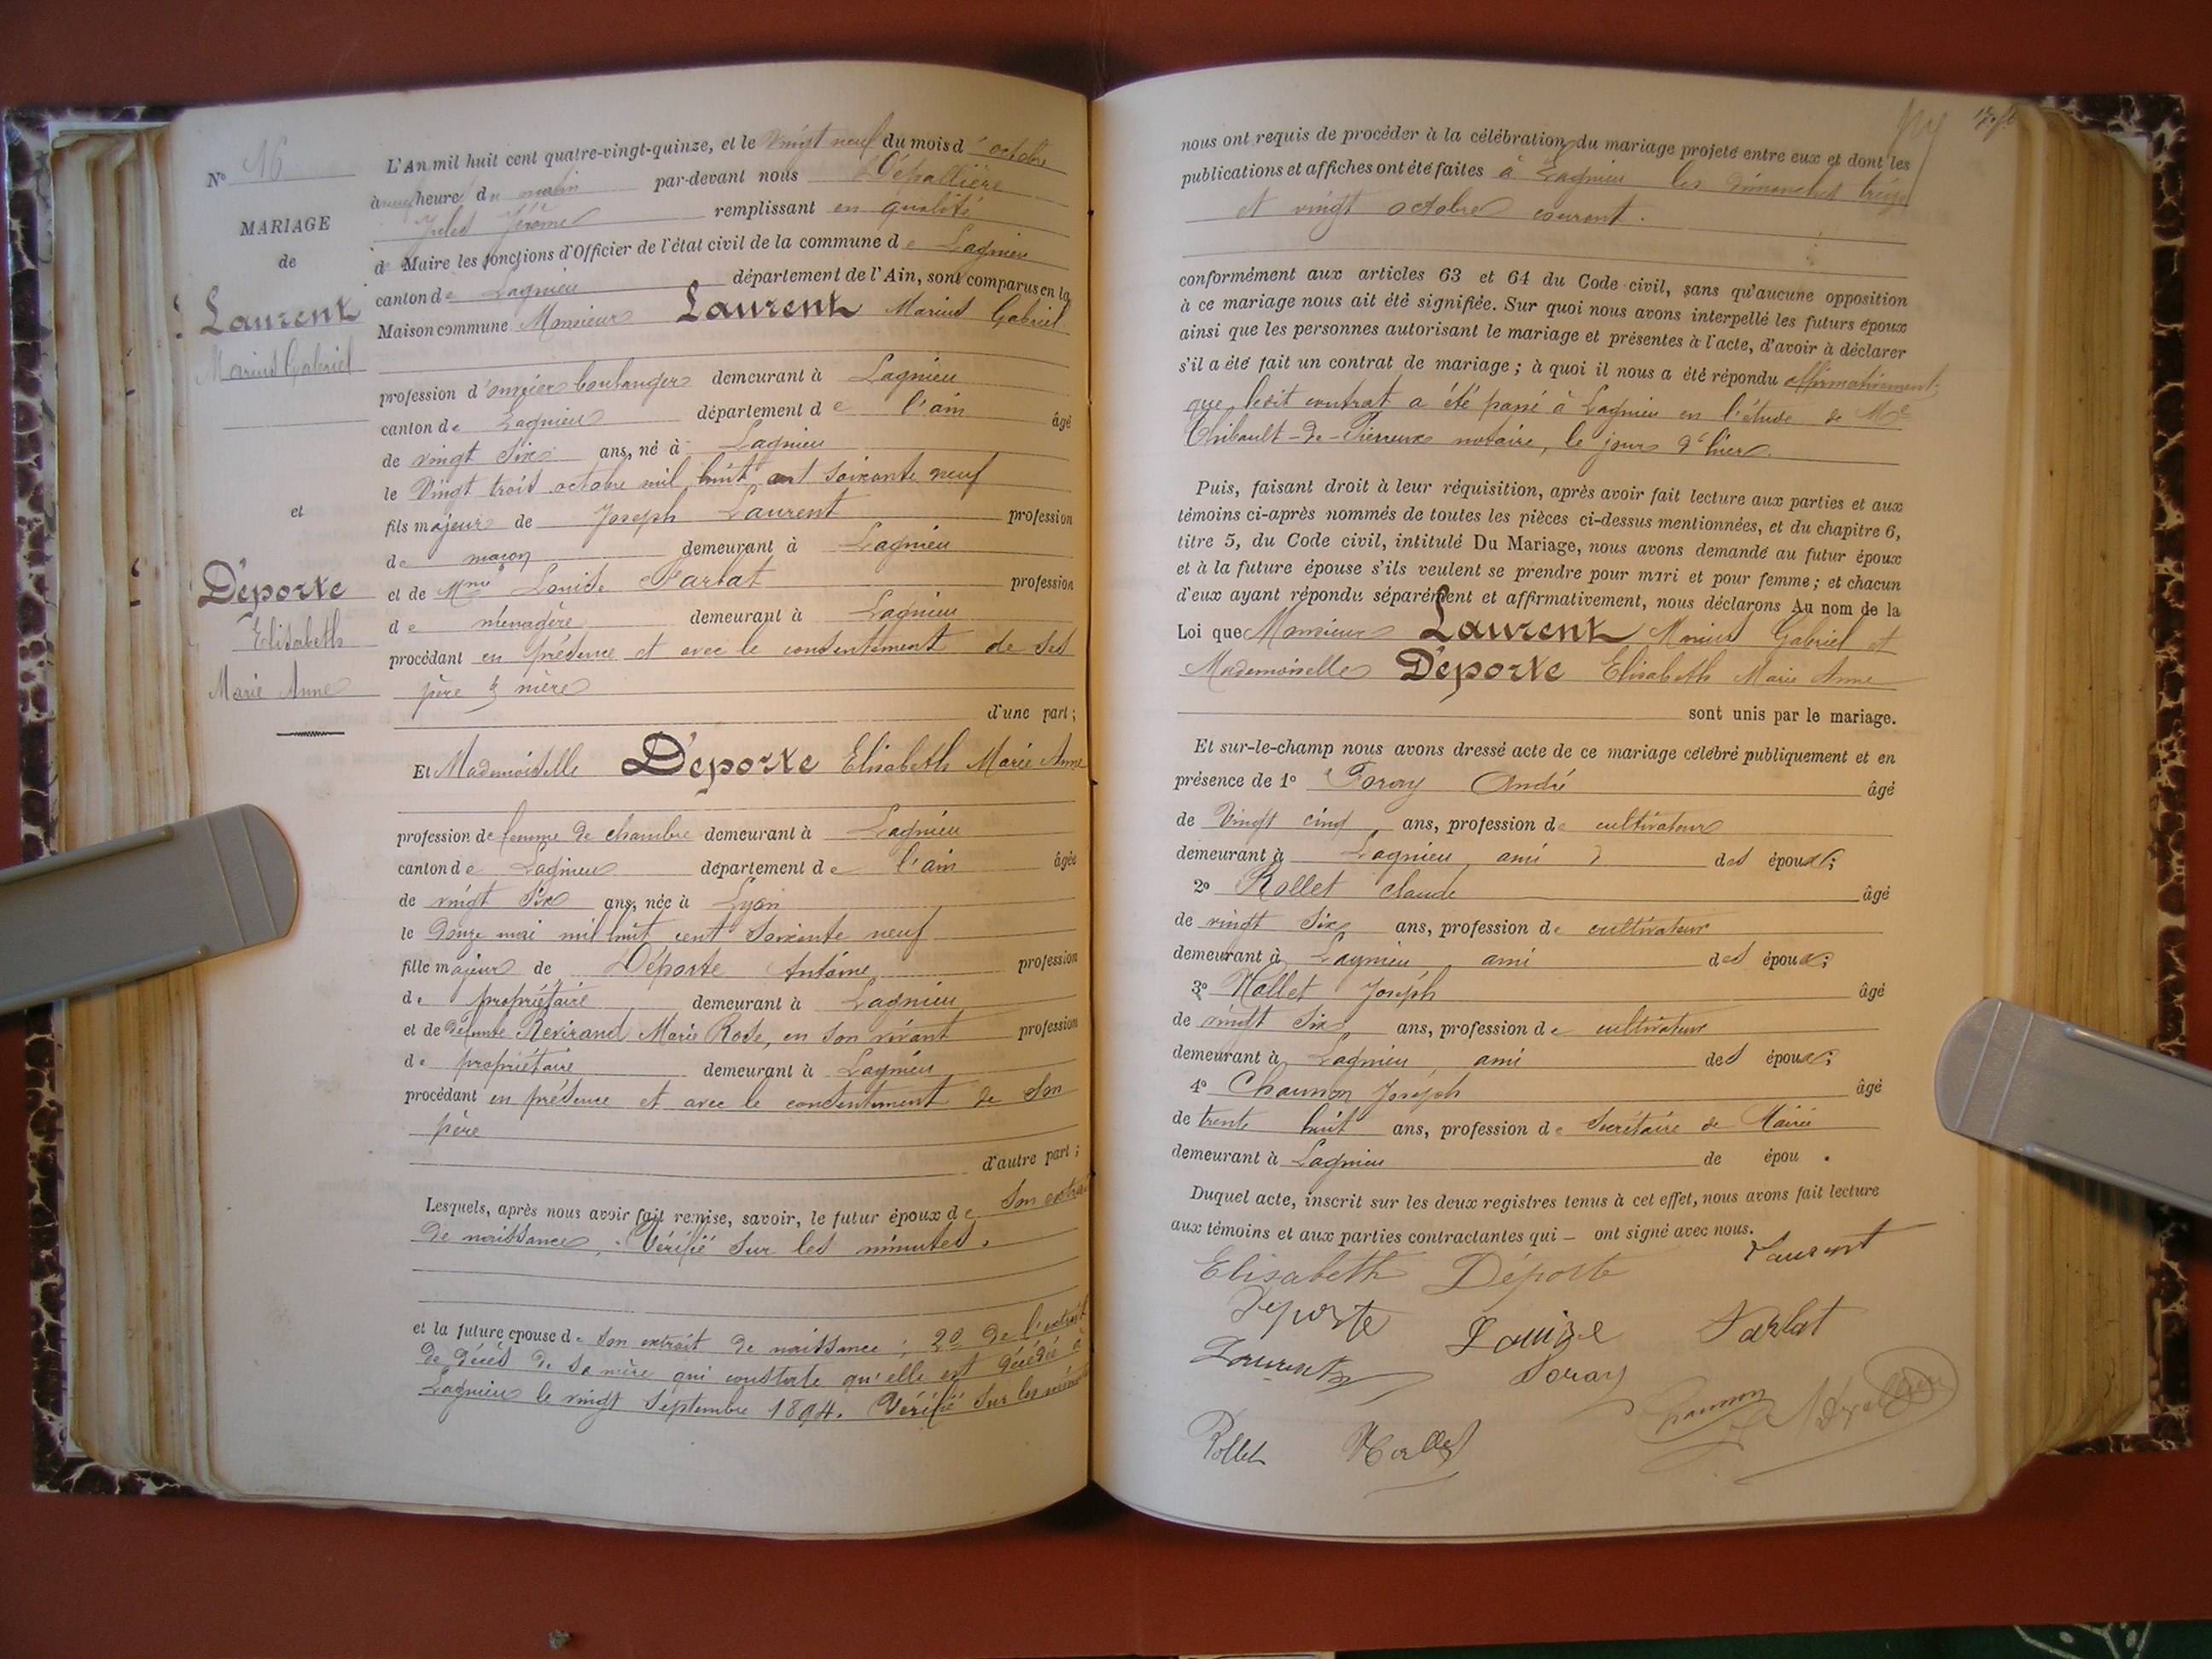 N° 16
MARIAGE
de
Laurent
Marius Gabriel
et
Déporte
Elisabeth
Marie Anne
L'An mil huit cent quatre-vingt-quinze, et le Vingt neuf du mois d'octobre
à heure du matin par-devant nous Dépallière
Jules Jérome remplissant en qualité
d Maire les fonctions d'Officier de l'état civil de la commune de Lagnieu
canton de Lagnieu département de l'Ain, sont comparus en la
Maison commune Monsieur Laurent Marius Gabriel
profession d'ouvrier boulanger demeurant à Lagnieu
canton de Lagnieu département de l'ain âgé
de vingt six ans, né à Lagnieu
le Vingt trois octobre mil huit cent soixante neuf
fils majeur de Joseph Laurent profession
de maçon demeurant à Lagnieu
et de Mme Louise Sarlat profession
de ménagère demeurant à Lagnieu
procédant en présence et avec le consentement de ses
père & mère
d'une part ;
Et Mademoiselle Déporte Elisabeth Marie Anne
profession de femme de chambre demeurant à Lagnieu
canton de Lagnieu département de l'ain âgée
de vingt six ans, née à Lyon
le douze mai mil huit cent soixante neuf
fille majeur de Déporte Antoine profession
de propriétaire demeurant à Lagnieu
et de défunte Revirand Marie Rose, en son vivant profession
de propriétaire demeurant à Lagnieu
procédant en présence et avec le consentement de son
père
d'autre part ;
Lesquels, après nous avoir fait remise, savoir, le futur époux de son extrait
de naissance. Vérifié sur les minutes.
et la future épouse de son extrait de naissance ; 2° de l'extrait
de décès de sa mère qui constate qu'elle est décédée à
Lagnieu le vingt Septembre 1894. Vérifié sur les minutes
nous ont requis de procéder à la célébration du mariage projeté entre eux et dont les
publications et affiches ont été faites à Lagnieu les dimanches treize
et vingt octobre courant.
conformément aux articles 63 et 64 du Code civil, sans qu'aucune opposition
à ce mariage nous ait été signifiée. Sur quoi nous avons interpellé les futurs époux
ainsi que les personnes autorisant le mariage et présentes à l'acte, d'avoir à déclarer
s'il a été fait un contrat de mariage ; à quoi il nous a été répondu affirmativement
que ledit contrat a été passé à Lagnieu en l'étude de Me
Thibault-de-Pierreux notaire, le jour d'hier.
Puis, faisant droit à leur réquisition, après avoir fait lecture aux parties et aux
témoins ci-après nommés de toutes les pièces ci-dessus mentionnées, et du chapitre 6,
titre 5, du Code civil, intitulé Du Mariage, nous avons demandé au futur époux
et à la future épouse s'ils veulent se prendre pour mari et pour femme ; et chacun
d'eux ayant répondu séparément et affirmativement, nous déclarons Au nom de la
Loi que Monsieur Laurent Marius Gabriel et
Mademoiselle Déporte Elisabeth Marie Anne
sont unis par le mariage.
Et sur-le-champ nous avons dressé acte de ce mariage célébré publiquement et en
présence de 1° Foray André âgé
de Vingt cinq ans, profession de cultivateur
demeurant à Lagnieu, ami des époux ;
2° Rollet Claude âgé
de vingt six ans, profession de cultivateur
demeurant à Lagnieu ami des époux ;
3° Hollet Joseph âgé
de vingt six ans, profession de cultivateur
demeurant à Lagnieu ami des époux ;
4° Chaumon Joseph âgé
de trente huit ans, profession de Secrétaire de Mairie
demeurant à Lagnieu de épou .
Duquel acte, inscrit sur les deux registres tenus à cet effet, nous avons fait lecture
aux témoins et aux parties contractantes qui — ont signé avec nous.
Laurent
Elisabeth Déporte
Deporte Louise Sarlat
Laurent Foray
Rollet